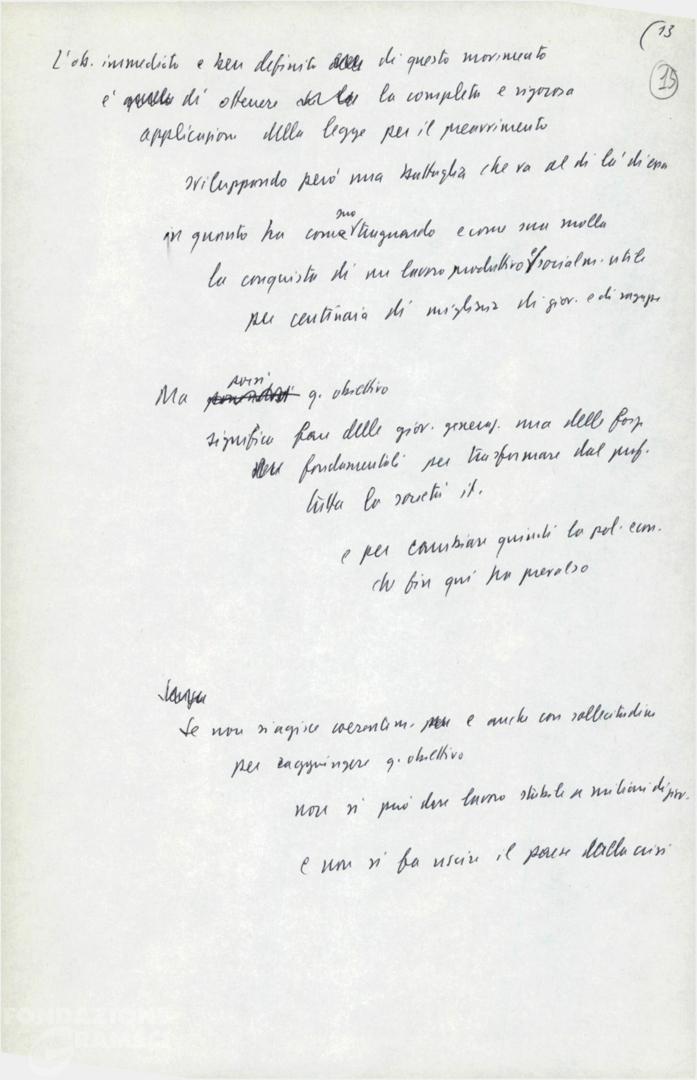 (13
15
L'ob. immediato e ben definito di questo movimento
è quello di ottenere la completa e rigorosa
applicazione della legge per il preavviamento
sviluppando però una battaglia che va al di là di essa
in quanto ha come suo traguardo e come sua molla
la conquista di un lavoro produttivo e/o socialm. utile
per centinaia di migliaia di giov. e di ragazze
Ma porsi q. obiettivo
significa fare delle giov. generaz. una delle forze
fondamentali per trasformare dal prof.
tutta la società it.
e per cambiare quindi la pol. econ.
che fin qui ha prevalso
Se non si agisce coerentem. e anche con sollecitudine
per raggiungere q. obiettivo
non si può dare lavoro stabile a milioni di giov.
e non si fa uscire il paese dalla crisi
FONDAZIONE
GRAMSCI